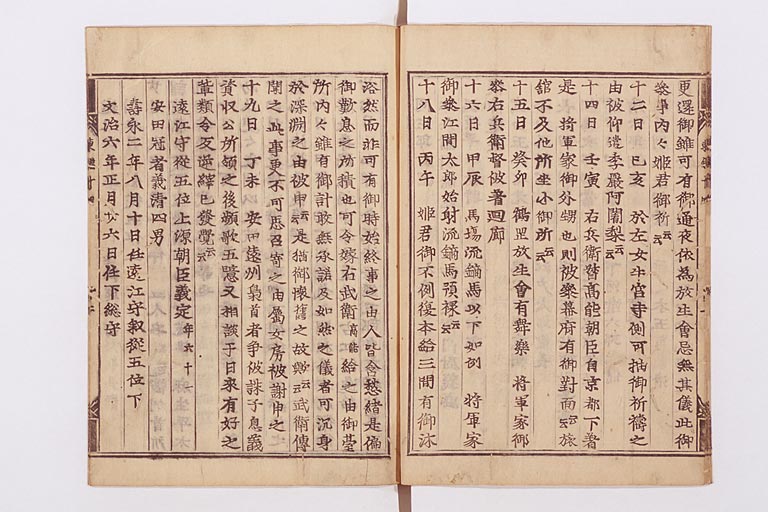 更還御雖可有御通夜依為放生會忌無其儀此御
參事内々姫君御祈云云
十二日 己亥 於左女牛宮寺側可抽御祈禱之
由被仰遣季嚴阿闍梨云云
十四日 壬寅 右兵衛督高能朝臣自京都下著
是 將軍家御外甥也則被參幕府有御對面云云旅
舘不及他所坐小御所云云
十五日 癸卯 鶴岡放生會有舞樂 將軍家御
參右兵衛督被著廻廊
十六日 甲辰 馬塲流鏑馬以下如例 將軍家
御參江間太郎始射流鏑馬預祿云云
十八日 丙午 姫君御不例復本給三間有御沐
浴然而非可有御時始終事之由人皆含愁緒是偏
御歎息之所積也可令嫁右武衛高能給之由御臺
所内々雖有御計敢無承諾及如然之儀者可沉身
於深淵之由被申云云是猶御懷舊之故歟云云武衛傳
聞之此事更不可思召寄之由属女房被謝申之
十九日 丁未 以安田遠州梟首者爭被誅子息義
資收公所領之後頻歌五噫又相談于日來有好之
輩類令反逆縡已發覺云云
遠江守從五位上源朝臣義定年六十一
安田冠者義清四男
壽永二年八月十日任遠江守叙從五位下
文治六年正月廿六日任下總守